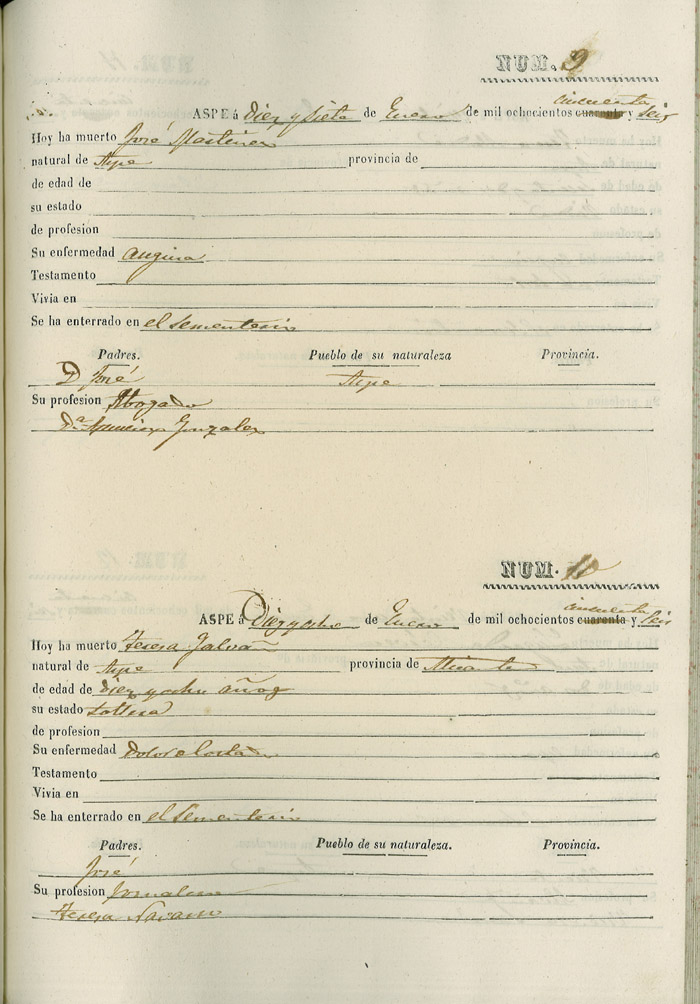 NUM. 9
cincuenta
ASPE á Diez y siete de Enero de mil ochocientos cuarenta y seis
Hoy ha muerto José Martinez
natural de Aspe provincia de
de edad de
su estado
de profesion
Su enfermedad angina
Testamento
Vivia en
Se ha enterrado en el sementerio
Padres. Pueblo de su naturaleza Provincia.
D José Aspe
Su profesion Abogado
Dª Gonzalez
NUM. 10
cincuenta
ASPE á Diez y ocho de Enero de mil ochocientos cuarenta y seis
Hoy ha muerto Teresa Galvañ
natural de Aspe provincia de Alicante
de edad de diez y ocho años
su estado soltera
de profesion
Su enfermedad Dolor
Testamento
Vivia en
Se ha enterrado en el sementerio
Padres. Pueblo de su naturaleza. Provincia.
José
Su profesion Jornalero
Teresa Navarro